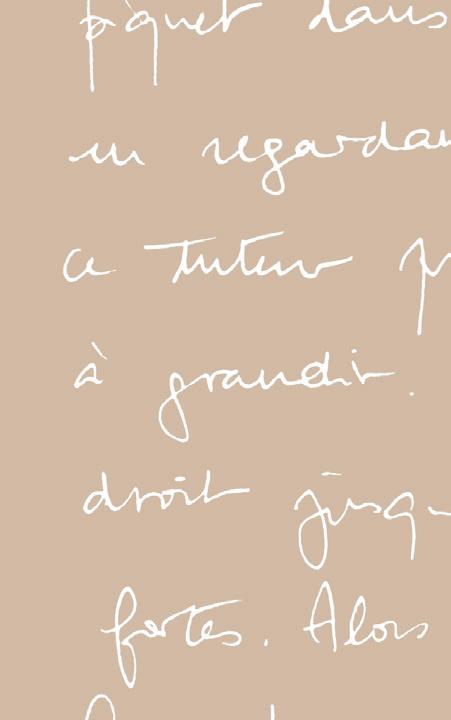 piquet dans
en regardan
ce Tuteur p
à grandir.
droit jusq
fortes. Alors